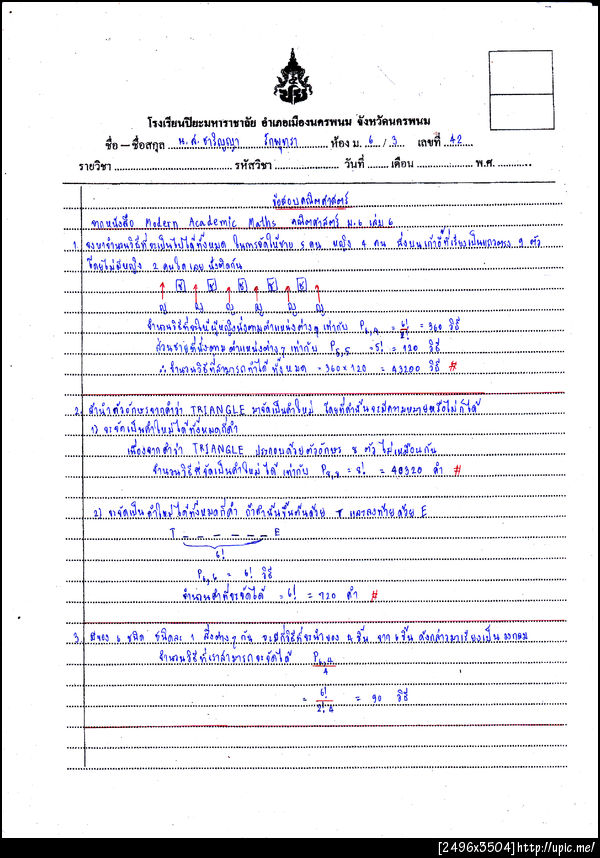 โรงเรียนปิยะมหาราชาลัย อำเภอเมืองนครพนม จังหวัดนครพนม
ชื่อ – ชื่อสกุล น.ส. ชาริญญา รักพุทรา ห้อง ม. 6 / 3 เลขที่ 42
รายวิชา รหัสวิชา วันที่ เดือน พ.ศ.
ข้อสอบคณิตศาสตร์
จากหนังสือ Modern Academic Maths คณิตศาสตร์ ม.6 เล่ม 6
1. จงหาจำนวนวิธีที่จะเป็นไปได้ทั้งหมด ในการจัดให้ชาย 5 คน หญิง 4 คน นั่งบนเก้าอี้ที่เรียงเป็นแถวตรง 9 ตัว
โดยไม่มีหญิง 2 คนใดเลย นั่งติดกัน
ช ช ช ช ช
ญ ญ ญ ญ ญ ญ
จำนวนวิธีที่จะให้ผู้หญิงนั่งตามตำแหน่งต่างๆ เท่ากับ P6,4 = 6!/2! = 360 วิธี
ส่วนชายที่นั่งตามตำแหน่งต่างๆ เท่ากับ P5,5 = 5! = 120 วิธี
∴ จำนวนวิธีที่สามารถทำได้ทั้งหมด = 360×120 = 43200 วิธี #
2. ถ้านำตัวอักษรจากคำว่า TRIANGLE มาจัดเป็นคำใหม่ โดยที่คำนั้นจะมีความหมายหรือไม่ก็ได้
1) จะจัดเป็นคำใหม่ได้ทั้งหมดกี่คำ
เนื่องจากคำว่า TRIANGLE ประกอบด้วยตัวอักษร 8 ตัว ไม่เหมือนกัน
จำนวนวิธีที่จัดเป็นคำใหม่ได้ เท่ากับ P8,8 = 8! = 40320 คำ #
2) จะจัดเป็นคำใหม่ได้ทั้งหมดกี่คำ ถ้าคำนั้นขึ้นต้นด้วย T และลงท้ายด้วย E
T _ _ _ _ _ _ E
6!
P6,6 = 6! วิธี
จำนวนคำที่จะจัดได้ = 6! = 720 คำ #
3. มีของ 6 ชนิด ชนิดละ 1 สิ่งต่างๆ กัน จะมีกี่วิธีที่จะนำของ 4 ชิ้น จาก 6 ชิ้น ดังกล่าวมาเรียงเป็นวงกลม
จำนวนวิธีที่เราสามารถจะจัดได้ P6,4/4
= 6!/2!·4 = 90 วิธี
[2496x3504]http://upic.me/